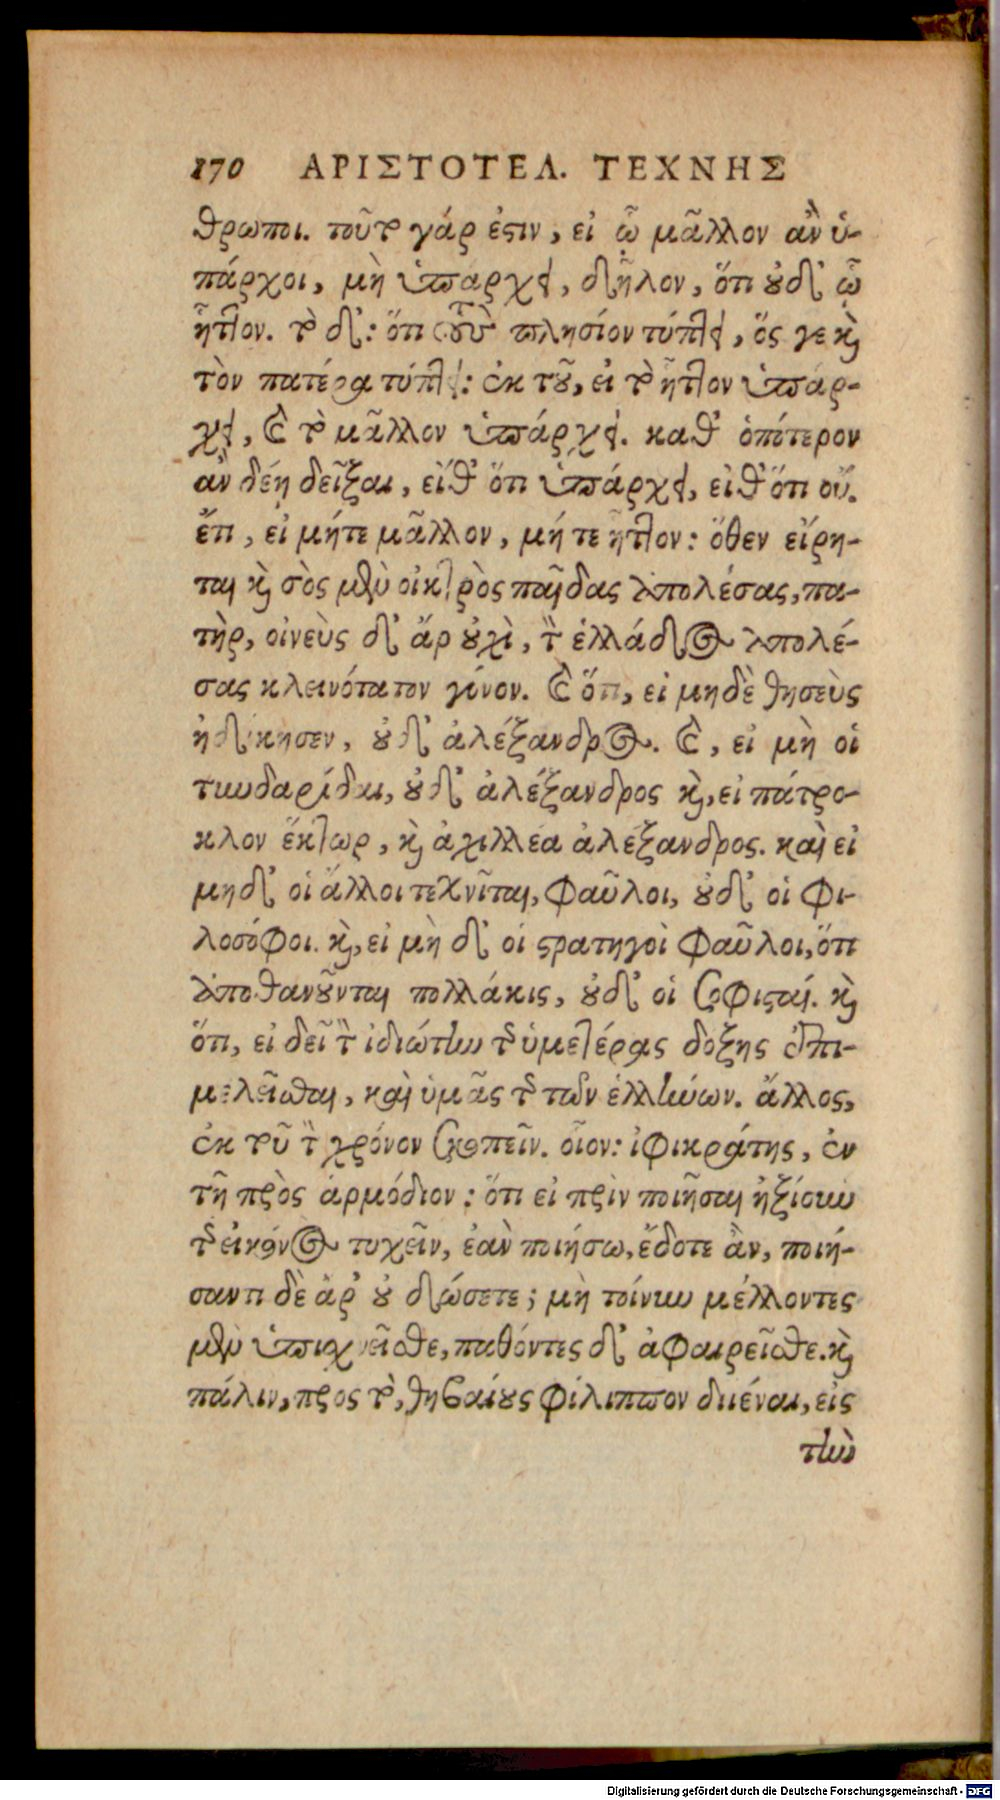 170 ΑΡΙΣΤΟΤΕΛ. ΤΕΧΝΗΣ
θρωποι. τοῦτο γάρ ἐστιν, εἰ ᾧ μᾶλλον ἂν ὑ-
πάρχοι, μὴ ὑπάρχει, δῆλον, ὅτι οὐδ' ᾧ
ἧττον. τὸ δ': ὅτι τοὺς πλησίον τύπτει, ὅς γε καὶ
τὸν πατέρα τύπτει: ἐκ τοῦ, εἰ τὸ ἧττον ὑπάρ-
χει, καὶ τὸ μᾶλλον ὑπάρχει. καθ' ὁπότερον
ἂν δέῃ δεῖξαι, εἴθ' ὅτι ὑπάρχει, εἴθ' ὅτι οὔ.
ἔτι, εἰ μήτε μᾶλλον, μήτε ἧττον: ὅθεν εἴρη-
ται καὶ σὸς μὲν οἰκτρὸς παῖδας ἀπολέσας, πα-
τὴρ, οἰνεὺς δ' ἄρ οὐχὶ, τὸν ἑλλάδος ἀπολέ-
σας κλεινότατον γόνον. καὶ ὅτι, εἰ μηδὲ θησεὺς
ἠδίκησεν, οὐδ' ἀλέξανδρος. καὶ, εἰ μὴ οἱ
τυνδαρίδαι, οὐδ' ἀλέξανδρος καὶ, εἰ πάτρο-
κλον ἕκτωρ, καὶ ἀχιλλέα ἀλέξανδρος. καὶ εἰ
μηδ' οἱ ἄλλοι τεχνῖται, φαῦλοι, οὐδ' οἱ φι-
λοσόφοι. καὶ, εἰ μὴ δ' οἱ στρατηγοὶ φαῦλοι, ὅτι
ἀποθανοῦνται πολλάκις, οὐδ' οἱ σοφισταί. καὶ
ὅτι, εἰ δεῖ τὸν ἰδιώτην τῆς ὑμετέρας δόξης ἐπι-
μελεῖσθαι, καὶ ὑμᾶς τῆς τῶν ἑλλήνων. ἄλλος,
ἐκ τοῦ τὸν χρόνον σκοπεῖν. οἷον: ἰφικράτης, ἐν
τῇ πρὸς ἁρμόδιον: ὅτι εἰ πρὶν ποιῆσαι ἠξίουν
τῆς εἰκόνος τυχεῖν, ἐὰν ποιήσω, ἔδοτε ἂν, ποιή-
σαντι δὲ ἀρ' οὐ δώσετε; μὴ τοίνυν μέλλοντες
μὲν ὑπισχνεῖσθε, παθόντες δ' ἀφαιρεῖσθε. καὶ
πάλιν, πρὸς τὸ, θηβαίους φίλιππον διιέναι, εἰς
τὴν
Digitalisierung gefördert durch die Deutsche Forschungsgemeinschaft - DFG